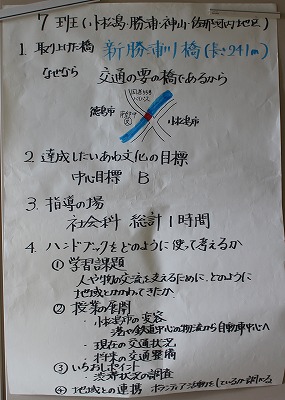 7班(小松島・勝浦・神山・佐那河内地区)
1. 取り上げた橋 新勝浦川橋(長さ241m)
なぜなら 交通の要の橋であるから
徳島市
小松島市
2. 達成したいあわ文化の目標
中心目標 B
3. 指導の場
社会科 総計1時間
4. ハンドブックをどのように使って考えるか
① 学習課題
人や物の交流を支えるために、どのように地域とかかわってきたか。
② 授業の展開
・小松島市の変容
港や鉄道中心の物流から自動車中心へ
・現在の交通状況
・将来の交通整備
③ いちおしポイント
・渋滞状況の調査
④ 地域との連携 ボランティア活動をしているか調べる